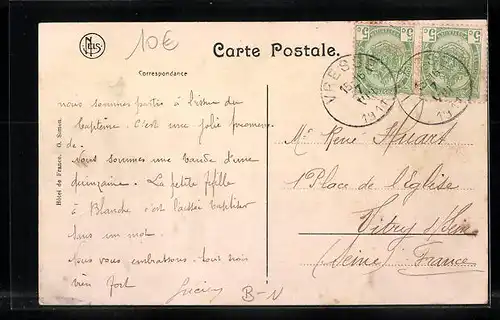 NELS
10€
Carte Postale.
Correspondance
5c 5c
VRESSE
VRESSE
nous sommes partis à l'issue du
baptême. C'est une jolie promena-
de.
Nous sommes une bande d'une
quinzaine. La petite fille
à Blanche s'est laissé baptiser
sans un mot.
Nous vous embrassons tous trois
bien fort
Lucien
B-N
Mr René Huart
1 Place de l'Eglise
Vitry s/Seine
(Seine) France
Hôtel de France. G. Simon.